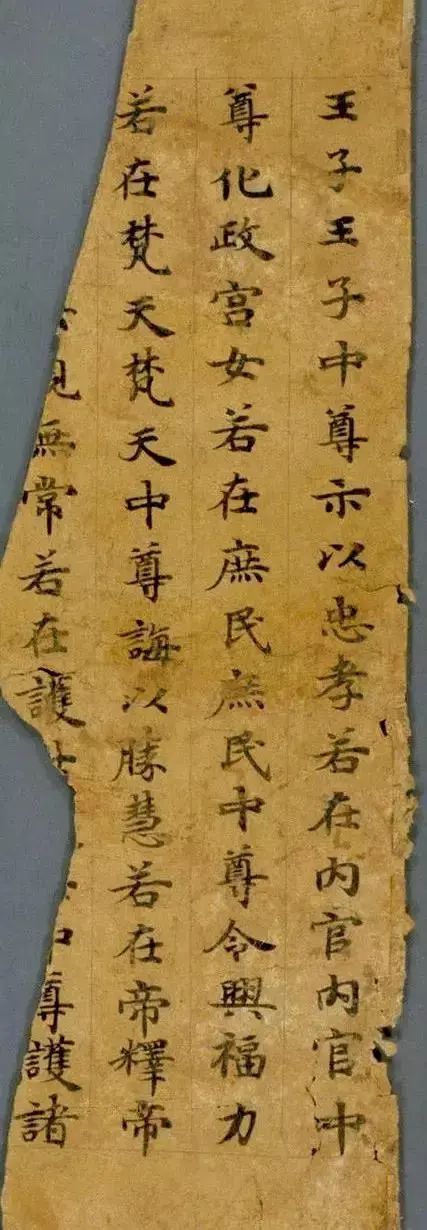 王子王子中尊示以忠孝若在内官内官中
尊化政宮女若在庶民庶民中尊令興福力
若在梵天梵天中尊誨以勝慧若在帝釋帝
現無常若在護世中尊護諸